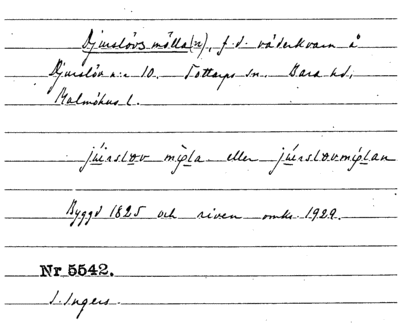 Djurslövs mölla(n), f.d. väderkvarn å
Djurslöv n:r 10. Tottarps sn., Bara hd,
Malmöhus l.
júrslov mỳla eller júrslovmỳlan
Byggd 1825 och riven omkr. 1929.
Nr 5542.
I. Ingers.